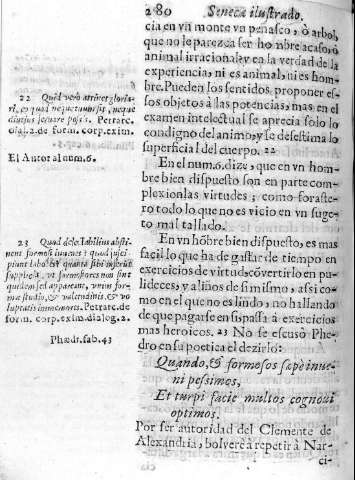 280 Seneca ilustrado.
cia en vn monte vn peñasco, ò arbol,
que no le parezca ser hombre acaso, ò
animal irracional y en la verdad de la
experiencia, ni es animal, ni es hom-
bre. Pueden los sentidos, proponer es-
sos objetos à las potencias, mas en el
examen intelectual se aprecia solo lo
condigno del animo, y se desestima lo
superficial del cuerpo. 22
En el num. 6. dize, que en vn hom-
bre bien dispuesto son en parte com-
plexion las virtudes; como foraste-
ro todo lo que no es vicio en vn suge-
to mal tallado.
En vn hõbre bien dispuesto, es mas
facil lo que ha de gastar de tiempo en
exercicios de virtud, cõvertirlo en pu-
lideces, y aliños de si mismo, assi co-
mo en el que no es lindo, no hallando
de que pagarse en si, passa à exercicios
mas heroicos. 23 No se escusò Phe-
dro en su poetica el dezirlo:
Quando, & formosos sæpe inue-
ni pessimos,
Et turpi facie multos cognoui
optimos.
Por ser autoridad del Clemente de
Alexandria, bolverè à repetir à Nar-
ci-
22 Quid verò attinet gloria-
ri, et quod neque tuum sit, neque
diutius seruare possis. Petrarc.
dial. 2. de form. corp. exim.
El Autor al num. 6.
23 Quàm
formosi iuuenes
labor,
vt formosiores non sint
quidem sed appareant, vnam for-
mæ studio, & valetudinis, & vo
luptatis immemores. Petrarc. de
form. corp. exim. dialog. 2.
Phædr. fab. 43